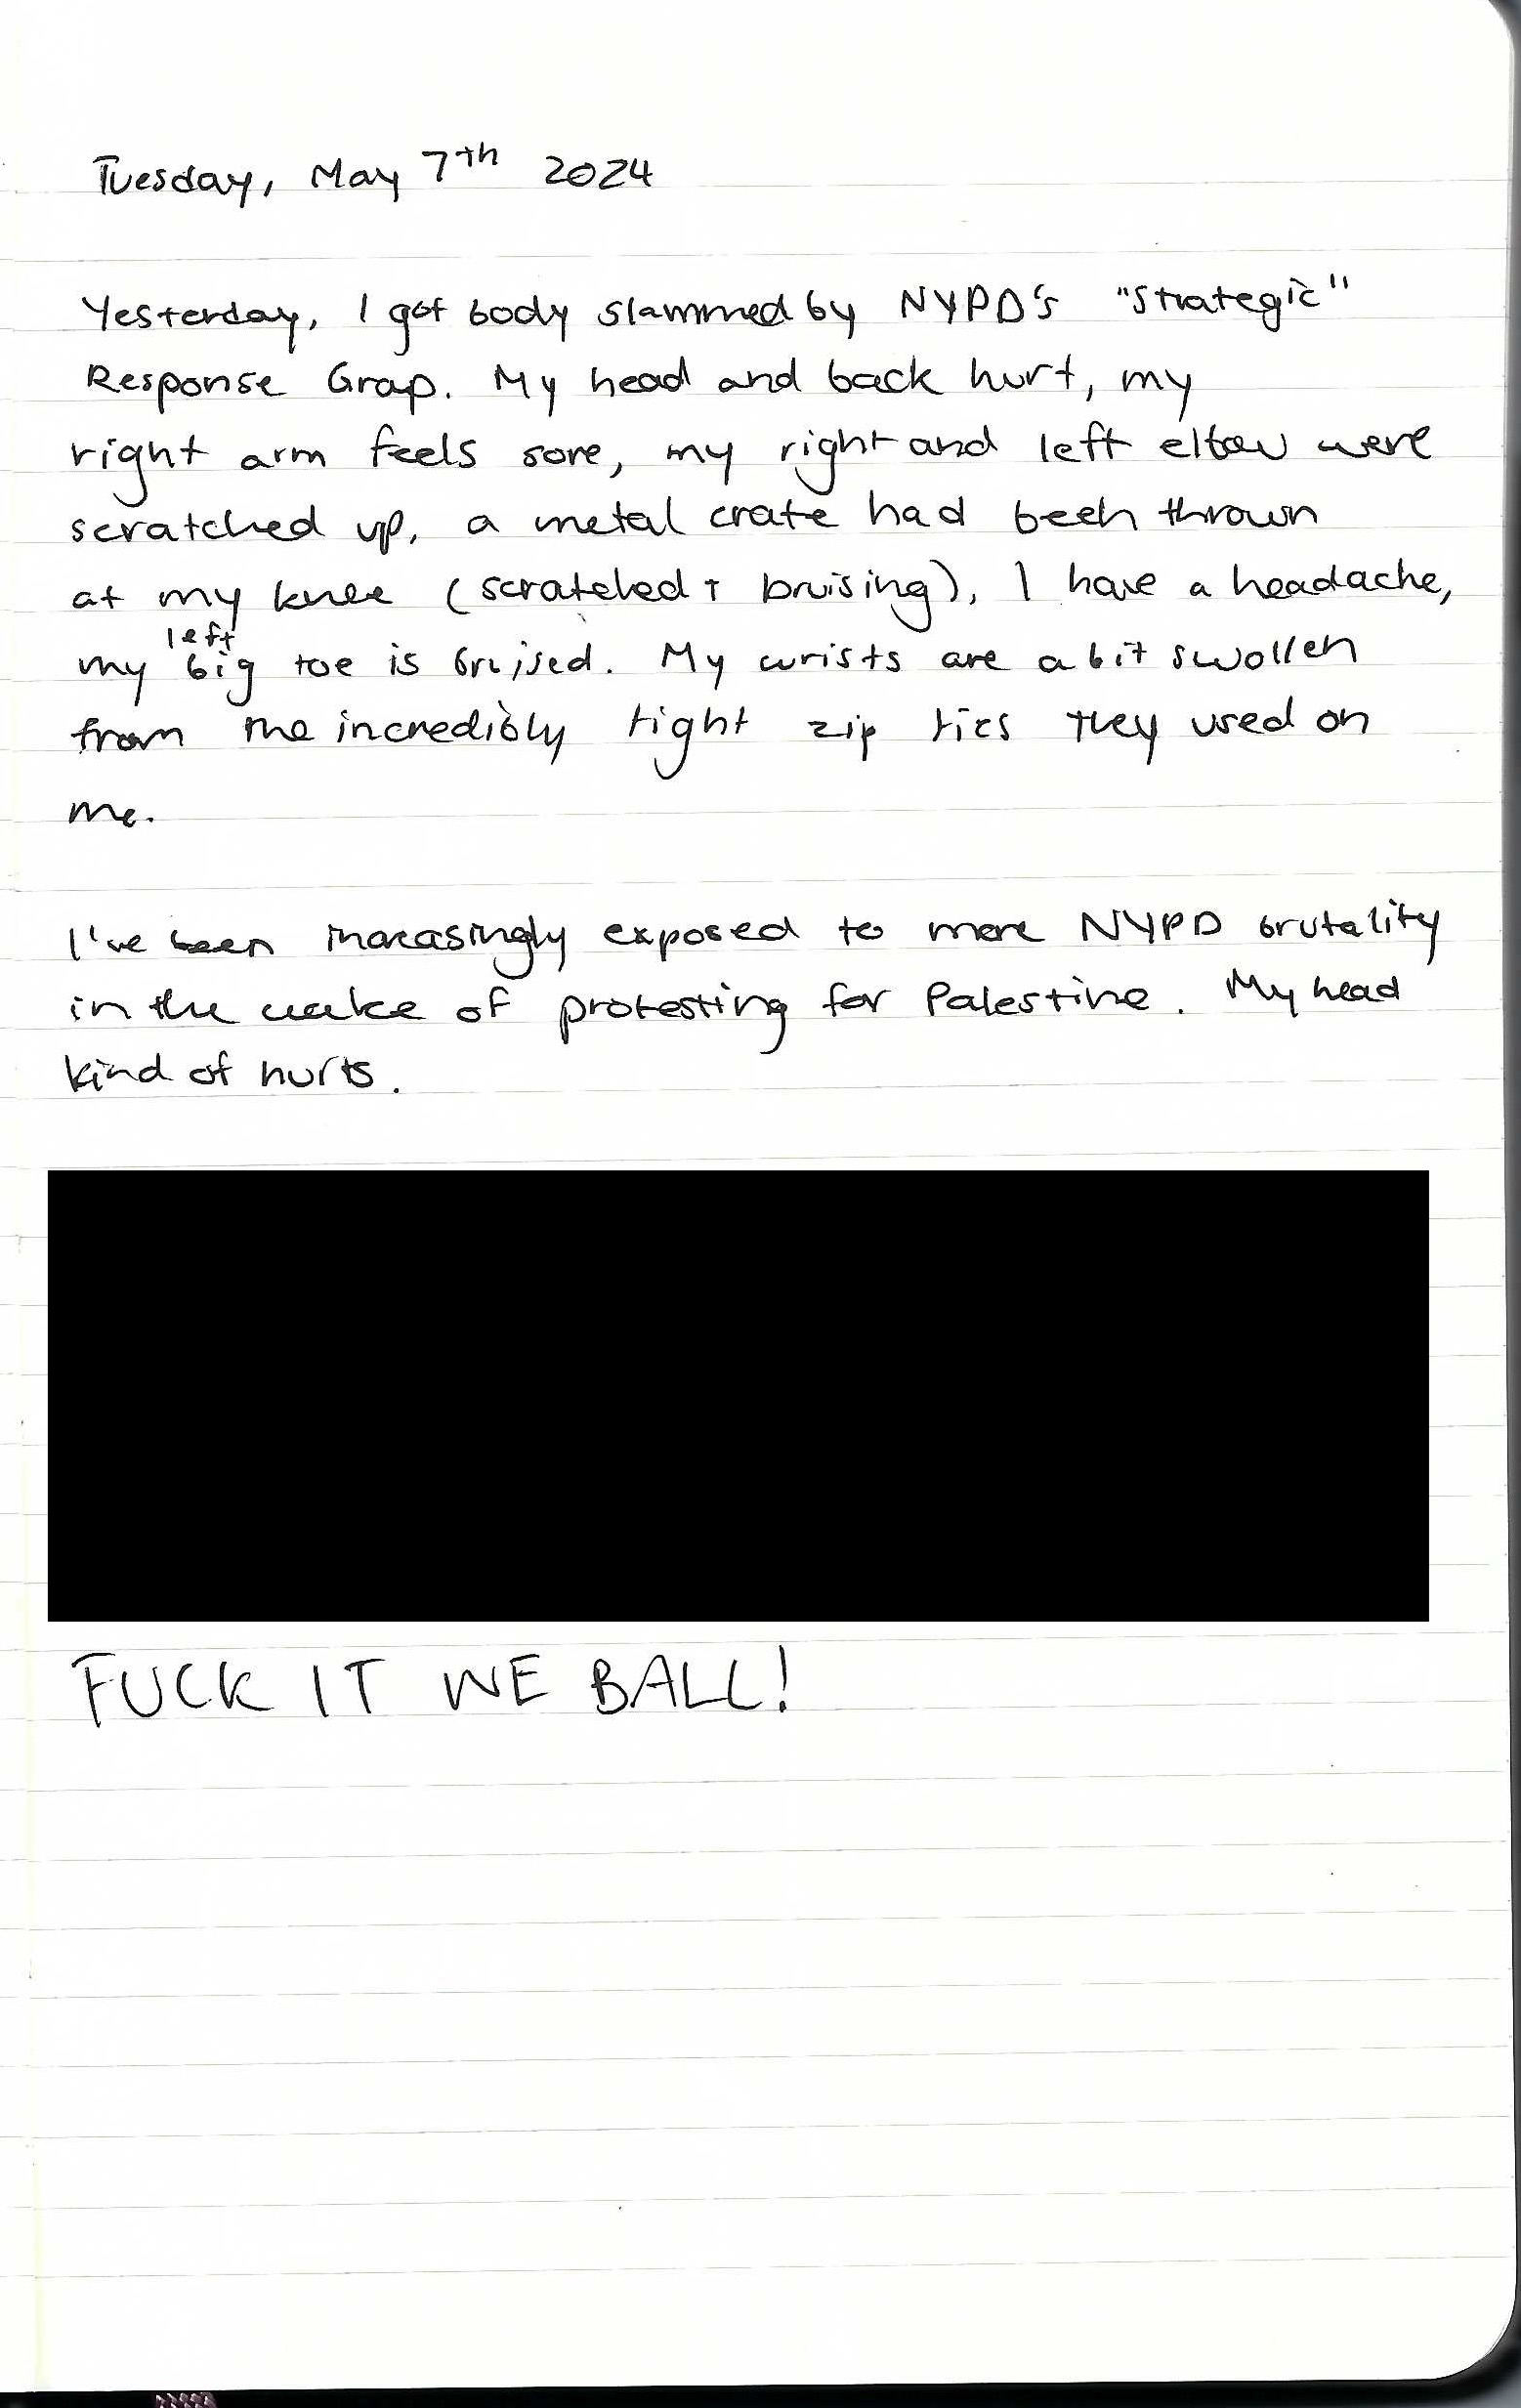 Tuesday, May 7th 2024
Yesterday, I got body slammed by NYPD's "Strategic"
Response Group. My head and back hurt, my
right arm feels sore, my right and left elbow were
scratched up, a metal crate had been thrown
at my knee (scratched + bruising), I have a headache,
my left big toe is bruised. My wrists are a bit swollen
from the incredibly tight zip ties they used on
me.
I've been increasingly exposed to more NYPD brutality
in the wake of protesting for Palestine. My head
kind of hurts.
FUCK IT WE BALL!